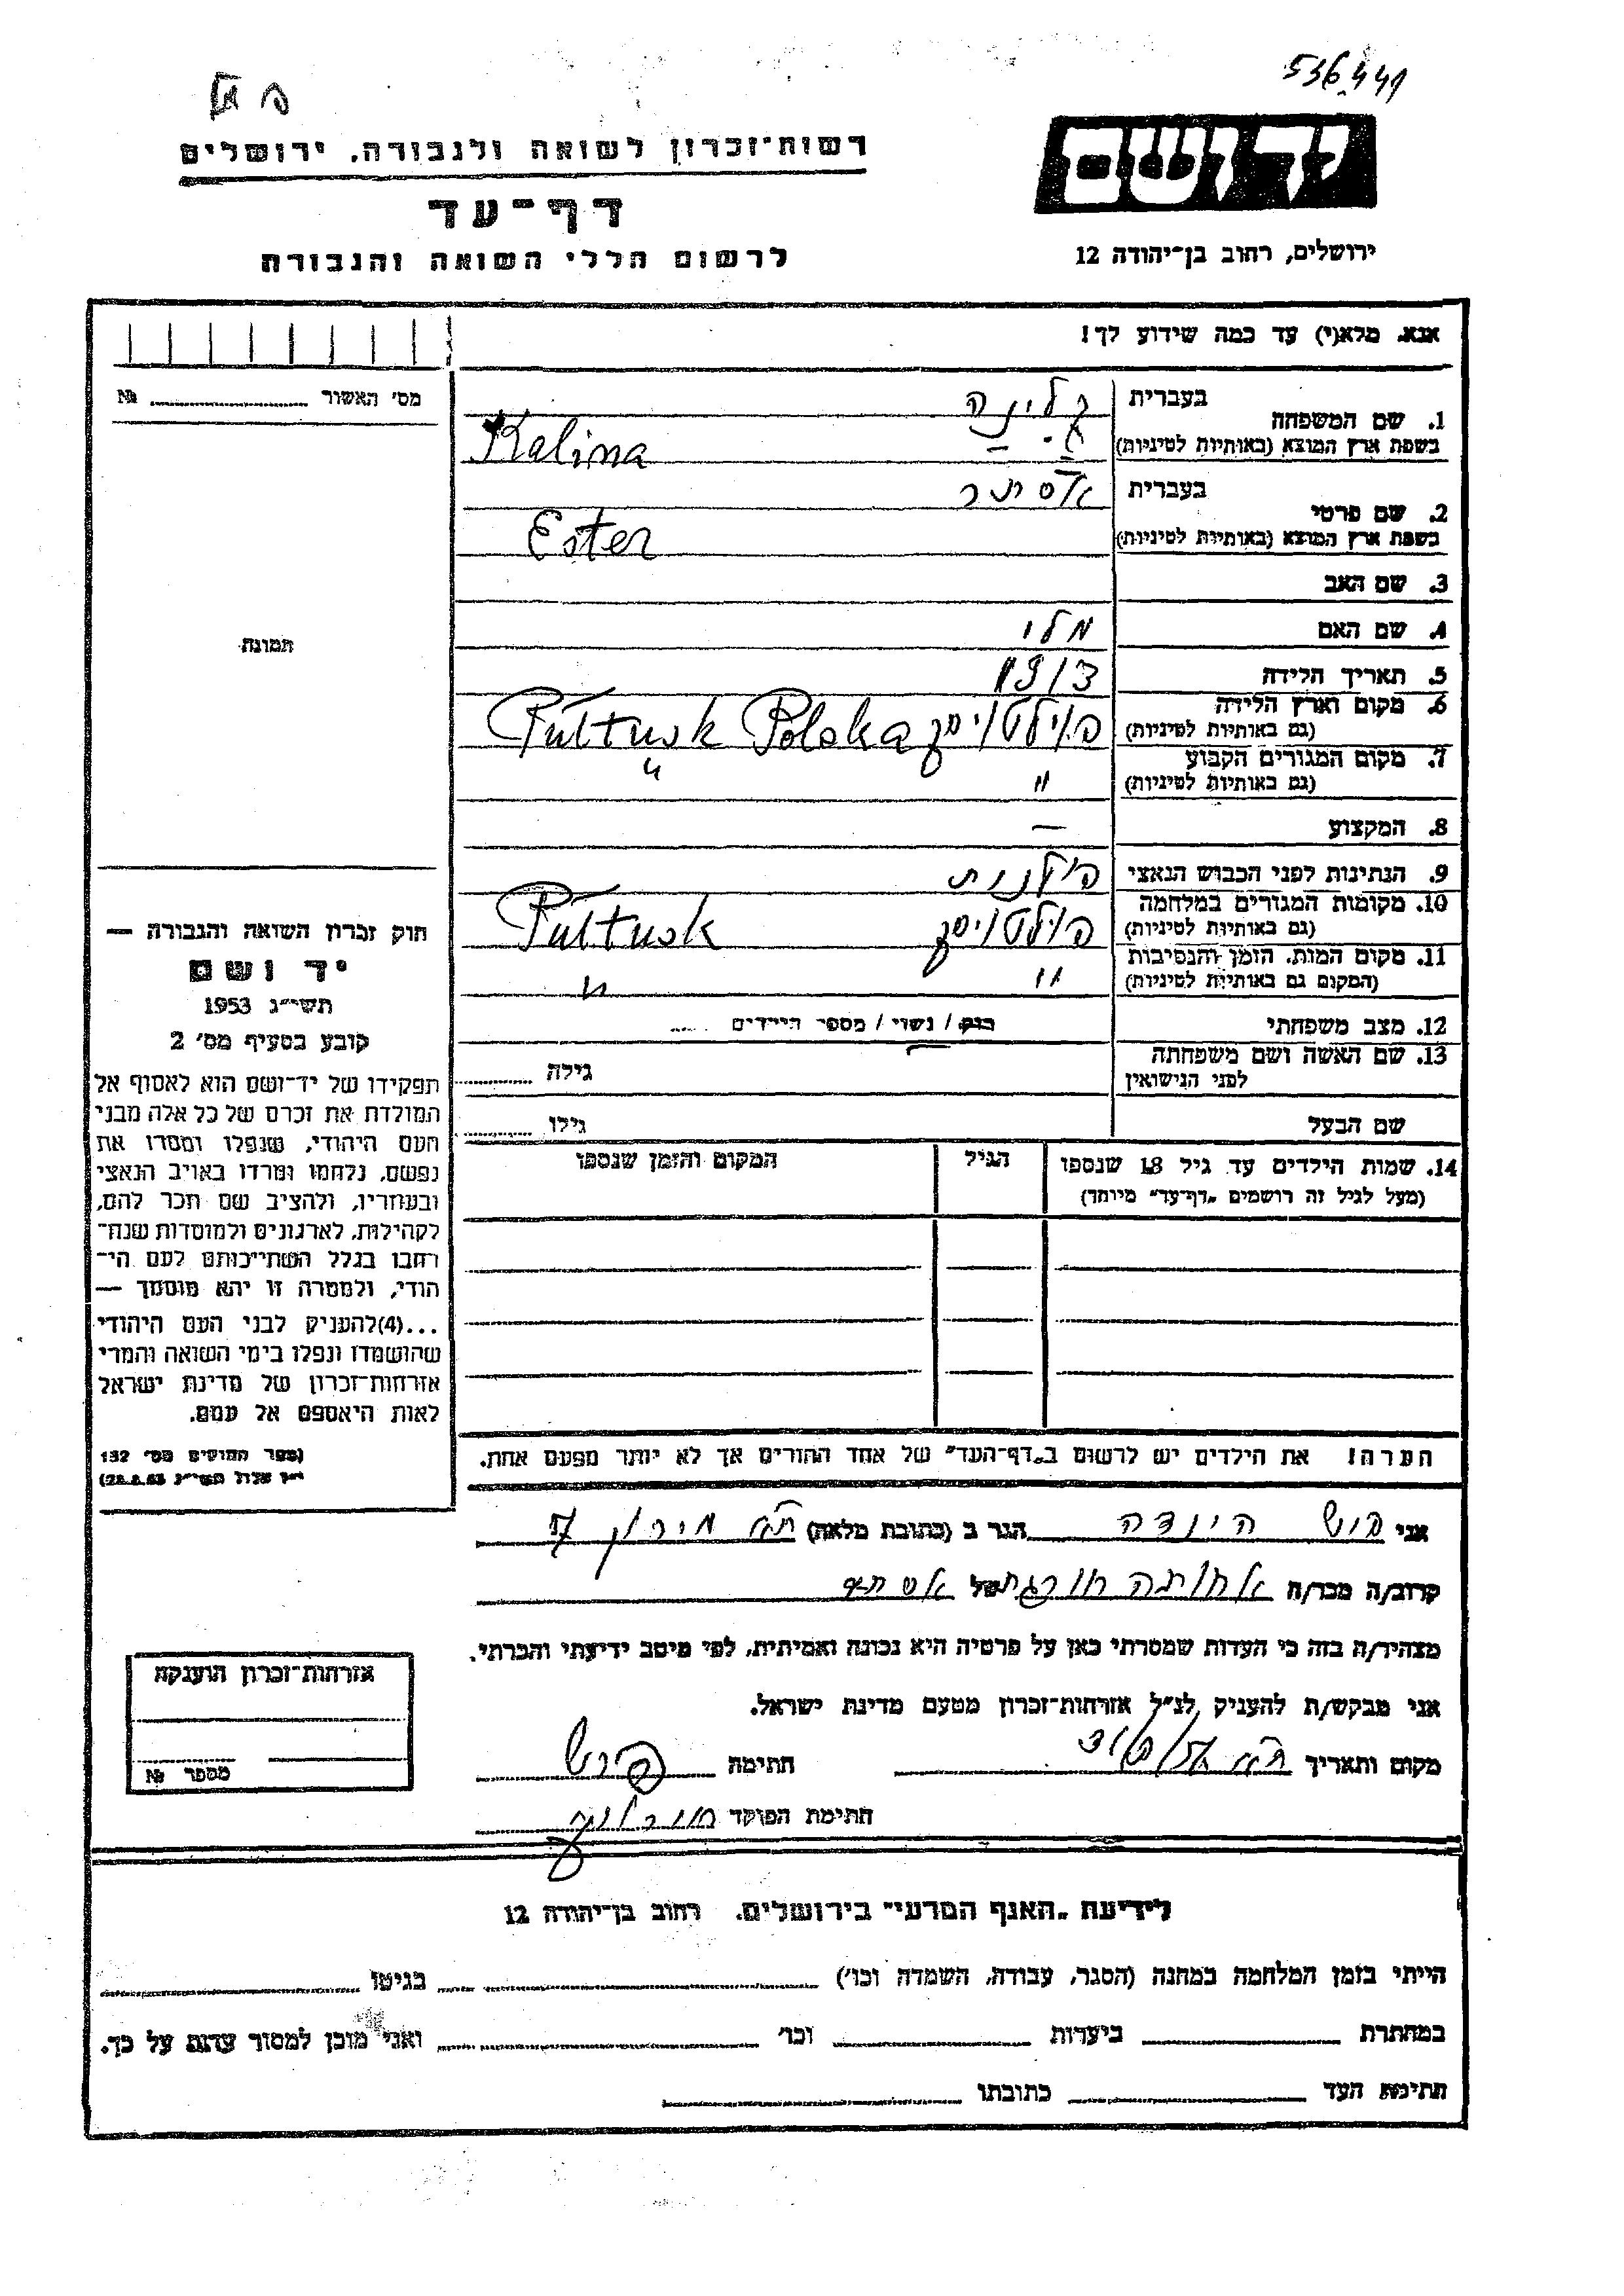 536441
רשות־זכרון לשואה ולגבורה, ירושלים
יד ושם
דף־עד
לרשום חללי השואה והגבורה
ירושלים, רחוב בן־יהודה 12
אנא, מלא(י) עד כמה שידוע לך!
מס׳ האשור № 
1. שם המשפחה
בעברית קלינה
בשפת ארץ המוצא (באותיות לטיניות) Kalina
2. שם פרטי
בעברית אסתר
בשפת ארץ המוצא (באותיות לטיניות) Ester
3. שם האב
4. שם האם מלי
תמונה
5. תאריך הלידה 1913
6. מקום וארץ הלידה
(גם באותיות לטיניות) פולטוסק Pułtusk Polska
7. מקום המגורים הקבוע
(גם באותיות לטיניות) " "
8. המקצוע —
9. הנתינות לפני הכבוש הנאצי פולנית
10. מקומות המגורים במלחמה
(גם באותיות לטיניות) פולטוסק Pułtusk
11. מקום המות, הזמן והנסיבות
(המקום גם באותיות לטיניות) " "
12. מצב משפחתי רווק / נשוי / מספר הילדים
13. שם האשה ושם משפחתה
לפני הנישואין גילה
שם הבעל גילו
14. שמות הילדים עד גיל 18 שנספו
(מעל לגיל זה רושמים „דף־עד״ מיוחד)
הגיל
המקום והזמן שנספו
חוק זכרון השואה והגבורה —
יד ושם
תשי״ג 1953
קובע בסעיף מס׳ 2
תפקידו של יד־ושם הוא לאסוף אל
המולדת את זכרם של כל אלה מבני
העם היהודי, שנפלו ומסרו את
נפשם, נלחמו ומרדו באויב הנאצי
ובעוזריו, ולהציב שם וזכר להם,
לקהילות, לארגונים ולמוסדות שנח־
רבו בגלל השתייכותם לעם הי־
הודי, ולמטרה זו יהא מוסמך —
...(4)להעניק לבני העם היהודי
שהושמדו ונפלו בימי השואה והמרי
אזרחות־זכרון של מדינת ישראל
לאות היאספם אל עמם.
(ספר החוקים מס׳ 132
י״ז אלול תשי״ג 28.8.53)
הערה! את הילדים יש לרשום ב„דף־העד״ של אחד ההורים אך לא יותר מפעם אחת.
אני הינדה הגר ב (כתובת מלאה) ת״א מירון
קרוב/ה מכר/ה אחותה חורגת של אסתר
מצהיר/ה בזה כי העדות שמסרתי כאן על פרטיה היא נכונה ואמיתית, לפי מיטב ידיעתי והכרתי.
אני מבקש/ת להעניק לנ״ל אזרחות־זכרון מטעם מדינת ישראל.
מקום ותאריך ת״א חתימה
חתימת הפוקד
אזרחות־זכרון הוענקה
מספר №
לידיעת „האגף המדעי״ בירושלים, רחוב בן־יהודה 12
הייתי בזמן המלחמה במחנה (הסגר, עבודה, השמדה וכו׳) בגיטו
במחתרת ביערות וכו׳ ואני מוכן למסור עדות על כך.
חתימת העד כתובתו